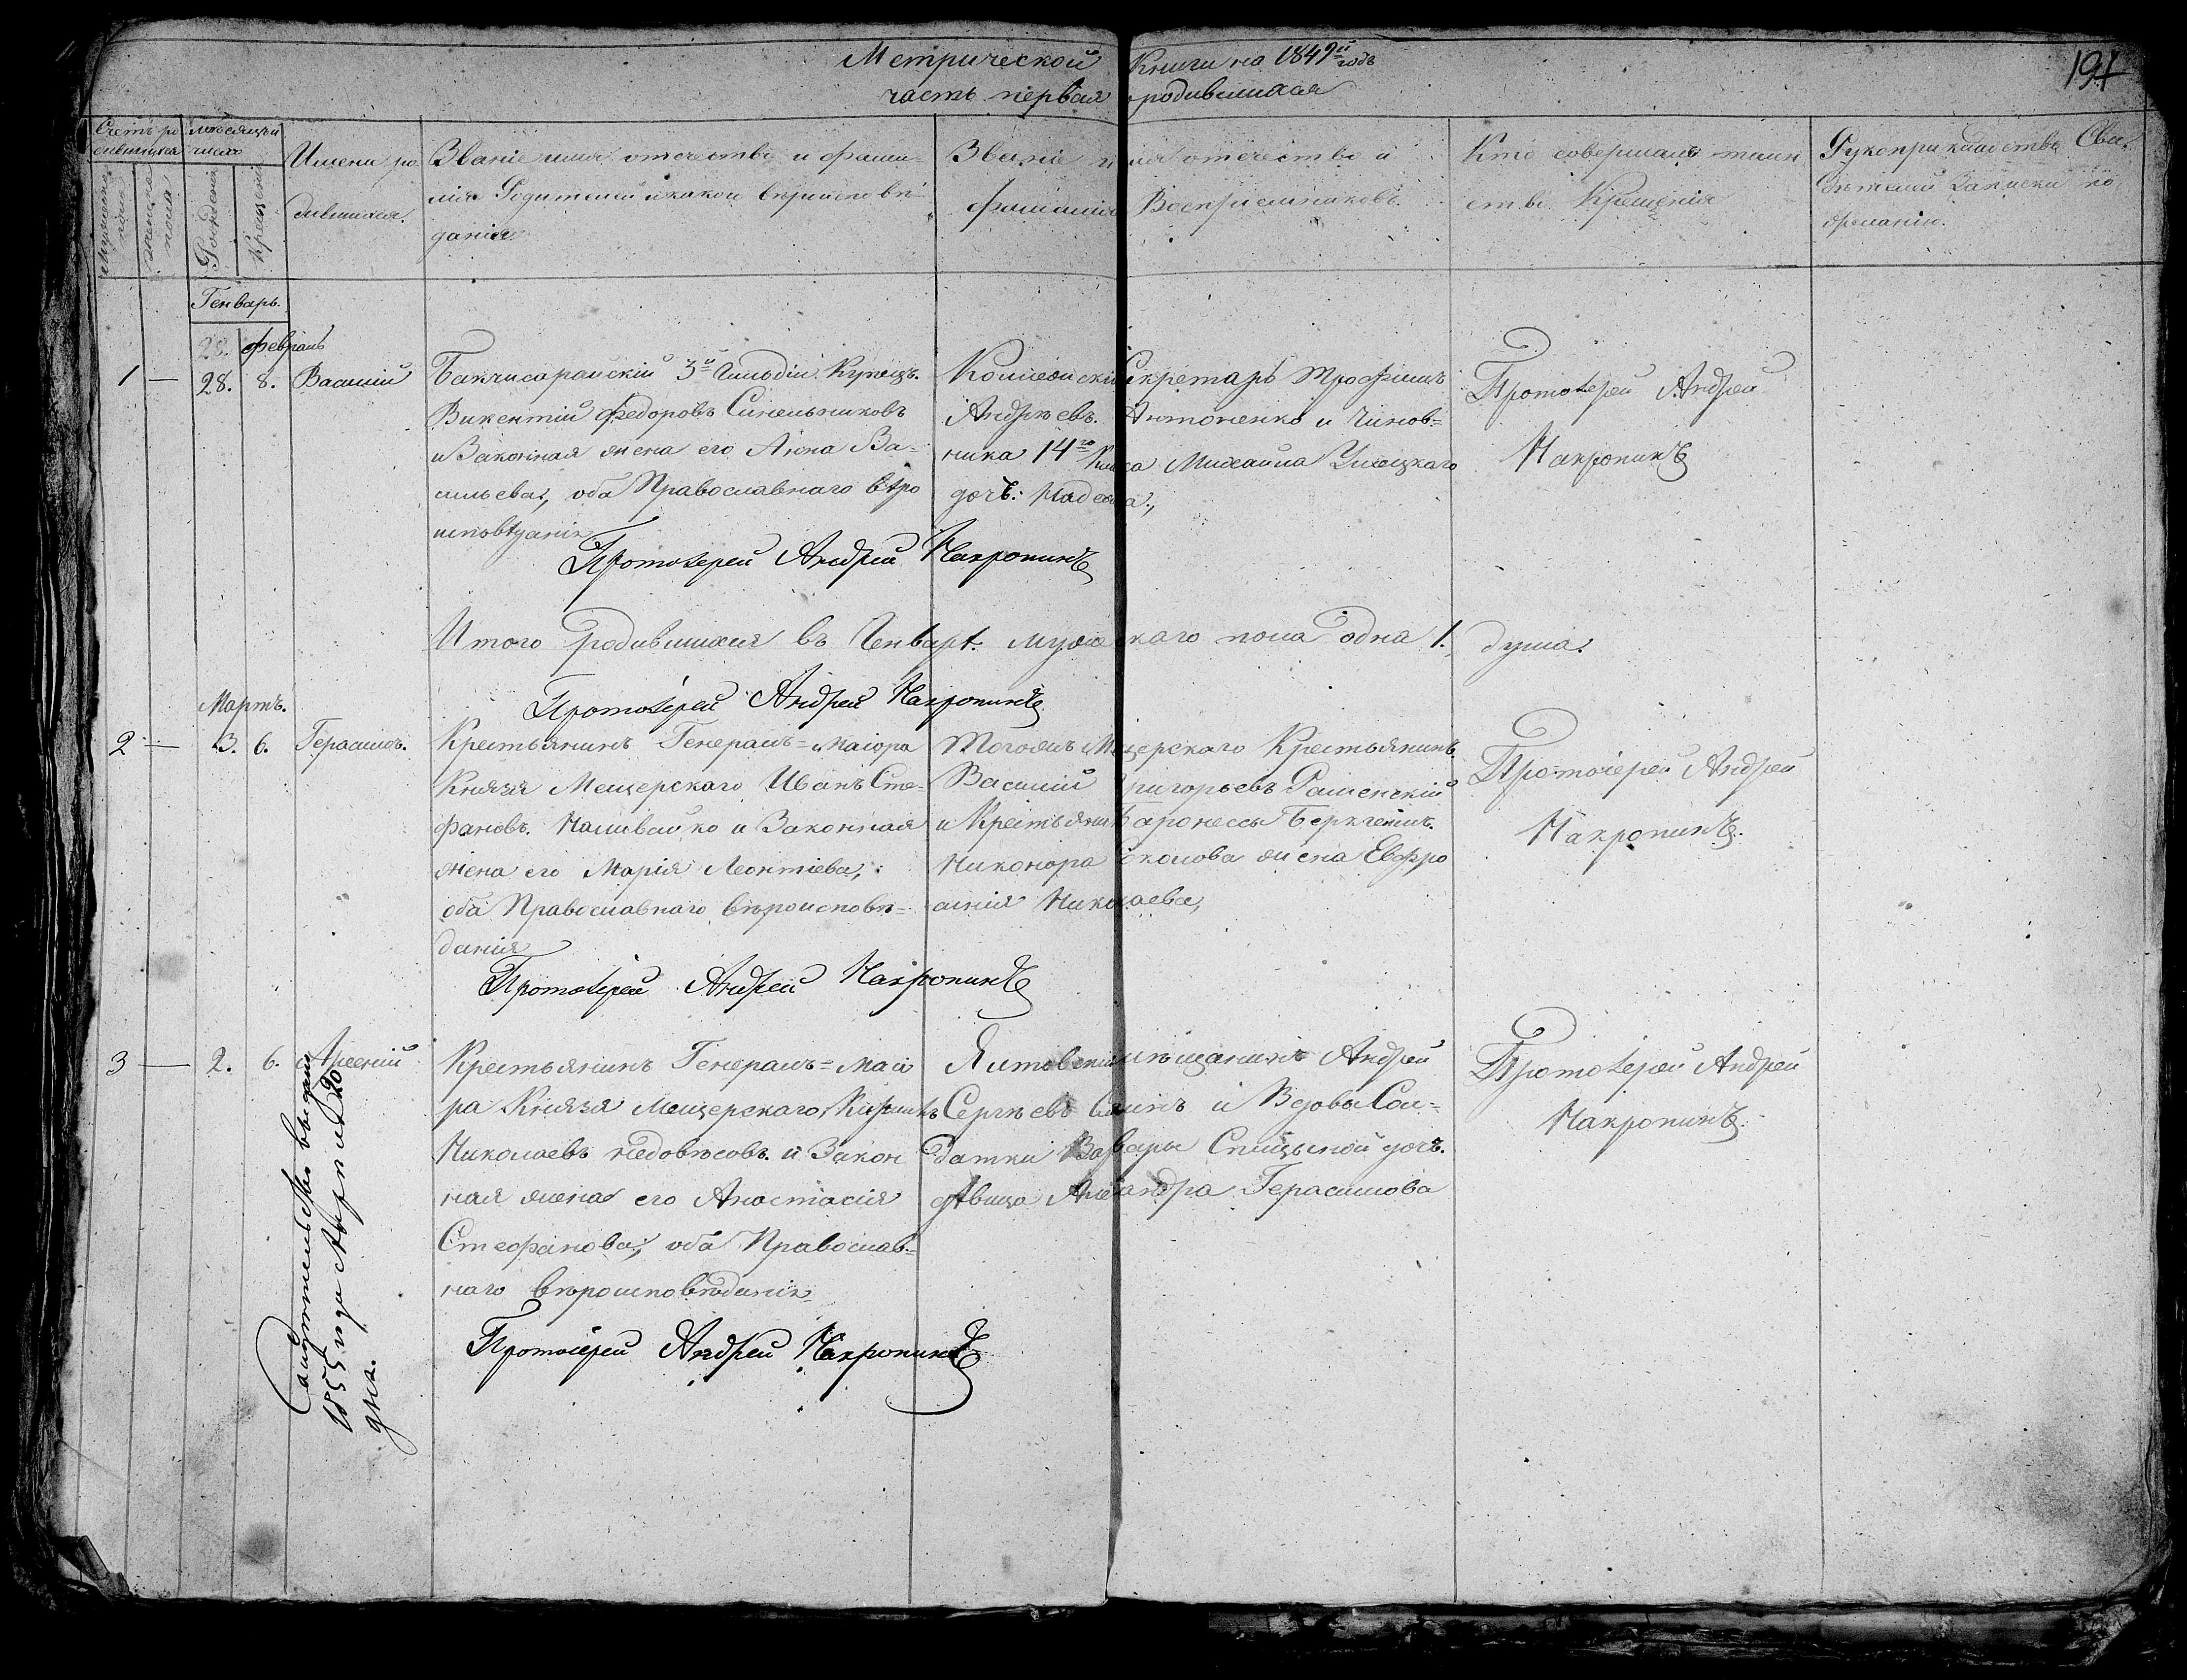 Метрической Книги на 1849й годъ
часть первая родившихся
194
Счетъ родившихся
мѣсяцъ и число
Мужеска пола
Женска пола
Рожденія
Крещенія
Имена ро
дившихся.
Званіе имя отечество и фами-
лія Родителей и какого вѣроисповѣ-
данія
Званіе имя отечество и
фамилія Воспріемниковъ.
Кто совершалъ таин
ство Крещенія
Рукоприкладство Сви
дѣтелей Записки по
желанію.
Генварь.
28. февраль
1 — 28. 8. Василій
Бакчисарайскій 3й Гильдіи Купецъ.
Викентій Федоровъ Синельниковъ
и Законная жена его Анна Ва-
сильева, оба Православнаго вѣро
исповѣданія
Протоіерей Андрей Накропинъ
Коллежскій Секретарь Трофимъ
Андреевъ. Антоненко и Чинов=
ника 14го Класа Михаила
дочь: Надежда.,
Протоіерей Андрей
Накропинъ
Итого родившихся въ Генварѣ. мужескаго пола одна 1. душа.
Протоіерей Андрей Накропинъ
Мартъ.
2 — 3. 6. Герасимъ.
Крестьянинъ Генералъ=Маіора
Князя Мещерскаго Иванъ Сте-
фановъ. Наливайко и Законная
жена его Марія Леонтіева,
оба Православнаго вѣроисповѣ=
данія
Протоіерей Андрей Накропинъ
Тогожъ Мещерскаго Крестьянинъ
Василій Григорьевъ
и Крестьянина Баронессы Беркгеймъ.
Никонора Соколова жена Евфро
синія Николаева,
Протоіерей Андрей
Накропинъ.
3 — 2. 6. Арсеній
Крестьянинъ Генералъ=Маіо
ра Князя Мещерскаго, Кирилъ
Николаевъ Недовѣсовъ. и Закон
ная жена его Анастасія
Стефанова, оба Православ-
наго вѣроисповѣданія
Протоіерей Андрей Накропинъ
Ялтовскій мѣщанинъ Андрей
Сергѣевъ и Вдовы Сол=
датки Варвары Спицыной дочь.
дѣвица Александра Герасимова
Протоіерей Андрей
Накропинъ.
Свидѣтельство выдано
1855 года Апрѣля 20
дня.